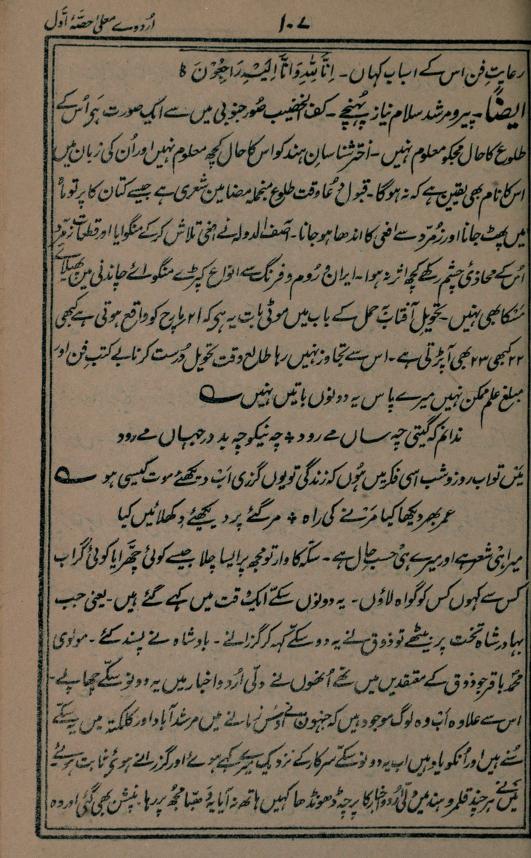 اُردوے معلیٰ حصّہ اوّل
۱۰۷
رعایتِ فن اس کے اسباب کہاں۔ اِنَّا لِلّٰہِ وَاِنَّآ اِلَیْہِ رَاجِعُوْنَ
ایضاً۔ پیر و مرشد سلام نیاز پہنچے۔ کف الخضیب صُورِ جنوبی میں سے ایک صورت ہے اُس کے
طلوع کا حال مجکو معلوم نہیں۔ اختر شناسانِ ہند کو اس کا حال کچھ معلوم نہیں اور اُن کی زبان میں
اس کا نام بھی یقین ہے کہ نہ ہوگا۔ قبولِ دعا وقت طلوع منجملہ مضامین شعری ہے جیسے کتان کا پرتو ماہ
میں پھٹ جانا اور زمرّد سے افعی کا اندھا ہو جانا۔ آصف الدولہ نے افعی تلاش کر کے منگوایا اور قطعات زمرّد
اُس کے محاذی چشم رکھے کچھ اثر نہ ہوا۔ ایران و رُوم و فرنگ سے انواع کپڑے منگوائے چاندنی میں پھیلائے
مسکا بھی نہیں۔ تحویل آفتاب بہ حمل کے باب میں موٹی بات یہ ہی کہ ۲۱ مارچ کو واقع ہوتی ہے کبھی
۲۲ کبھی ۲۳ بھی آ پڑتی ہے۔ اس سے تجاوز نہیں رہا طالع وقت تحویل دُرست کرنا بے کتب فن اور
مبلغ علم ممکن نہیں میرے پاس یہ دونوں باتیں نہیں
ندانم کہ گیتی چہ ساں مے رود ٭ چہ نیکو چہ بد در جہاں مے رود
میں تو اب روز و شب اسی فکر میں ہُوں کہ زندگی تو یوں گزری اب دیکھئے موت کیسی ہو
عمر بھر دیکھا کیا مرنے کی راہ ٭ مر گئے پر دیکھئے دکھلائیں کیا
میرا ہی شعر ہے اور میرے ہی حسب حال ہے۔ سکّہ کا وار تو مجھ پر ایسا چلا جیسے کوئی چھرّا یا کوئی گراب
کس سے کہوں کس کو گواہ لاؤں۔ یہ دونوں سکّے ایک وقت میں کہے گئے ہیں۔ یعنی جب
بہادر شاہ تخت پر بیٹھے تو ذوق نے یہ دو سکّے کہہ کر گزرانے۔ بادشاہ نے پسند کئے۔ مولوی
محمد باقر جو ذوق کے معتقدین میں تھے اُنھوں نے دلّی اُردو اخبار میں یہ دونوں سکّے چھاپے۔
اس سے علاوہ اب وہ لوگ موجود ہیں کہ جنہوں نے اُس زمانے میں مرشد آباد اور کلکتہ میں یہ سکّے
سُنے ہیں اور اُنکو یاد ہیں اب یہ دونوں سکّے سرکار کے نزدیک میرے کہے ہوئے اور گزرانے ہوئے ثابت ہوئے
میں نے ہر چند قلمرو ہند میں دلّی اُردو اخبار کا پرچہ ڈھونڈھا کہیں ہاتھ نہ آیا یہ دھبّا مجھ پر رہا۔ پنشن بھی گئی اور وہ